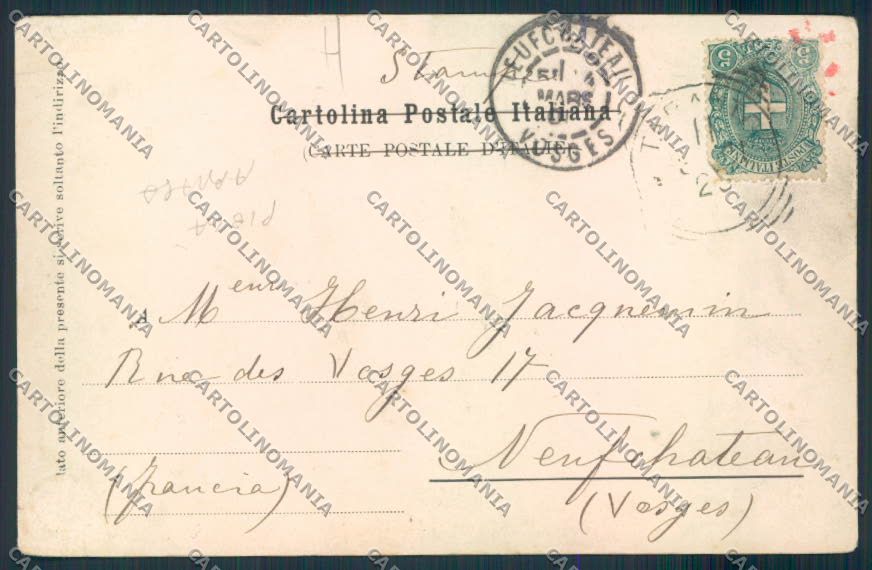 Stampe
Cartolina Postale Italiana
(CARTE POSTALE D'ITALIE)
NEUFCHATEAU
MARS
VOSGES
5
5
POSTE ITALIANE
lato anteriore della presente si scrive soltanto l'indirizzo
A Meur Henri Jacquemin
Rue des Vosges 17
Neufchateau
(Vosges)
(Francia)
CARTOLINOMANIA